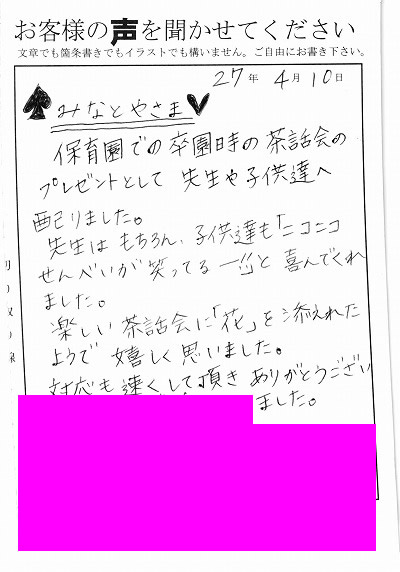 お客様の声を聞かせてください
文章でも箇条書きでもイラストでも構いません。ご自由にお書き下さい。
27年 4月10日
♠みなとやさま♥
保育園での卒園時の茶話会の
プレゼントとして 先生や子供達へ
配りました。
先生はもちろん、子供達も「ニコニコ
せんべいが笑ってる―」と喜んでくれ
ました。
楽しい茶話会に「花」を添えれた
ようで 嬉しく思いました。
対応も速くして頂き ありがとうござい
ました。